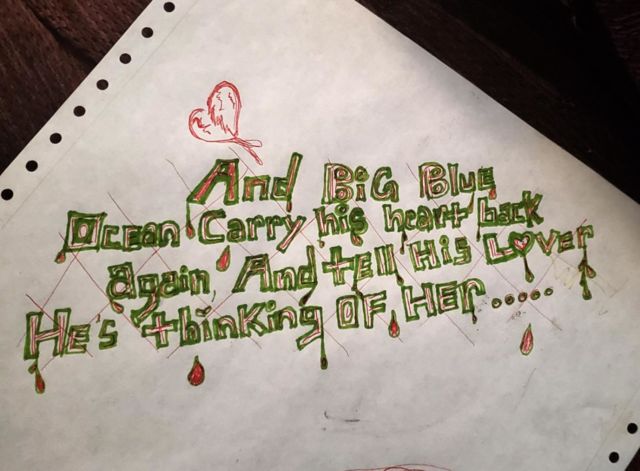 And BiG Blue
Ocean Carry his heart back
again And tell His Lover
He's thinking OF HEr.....